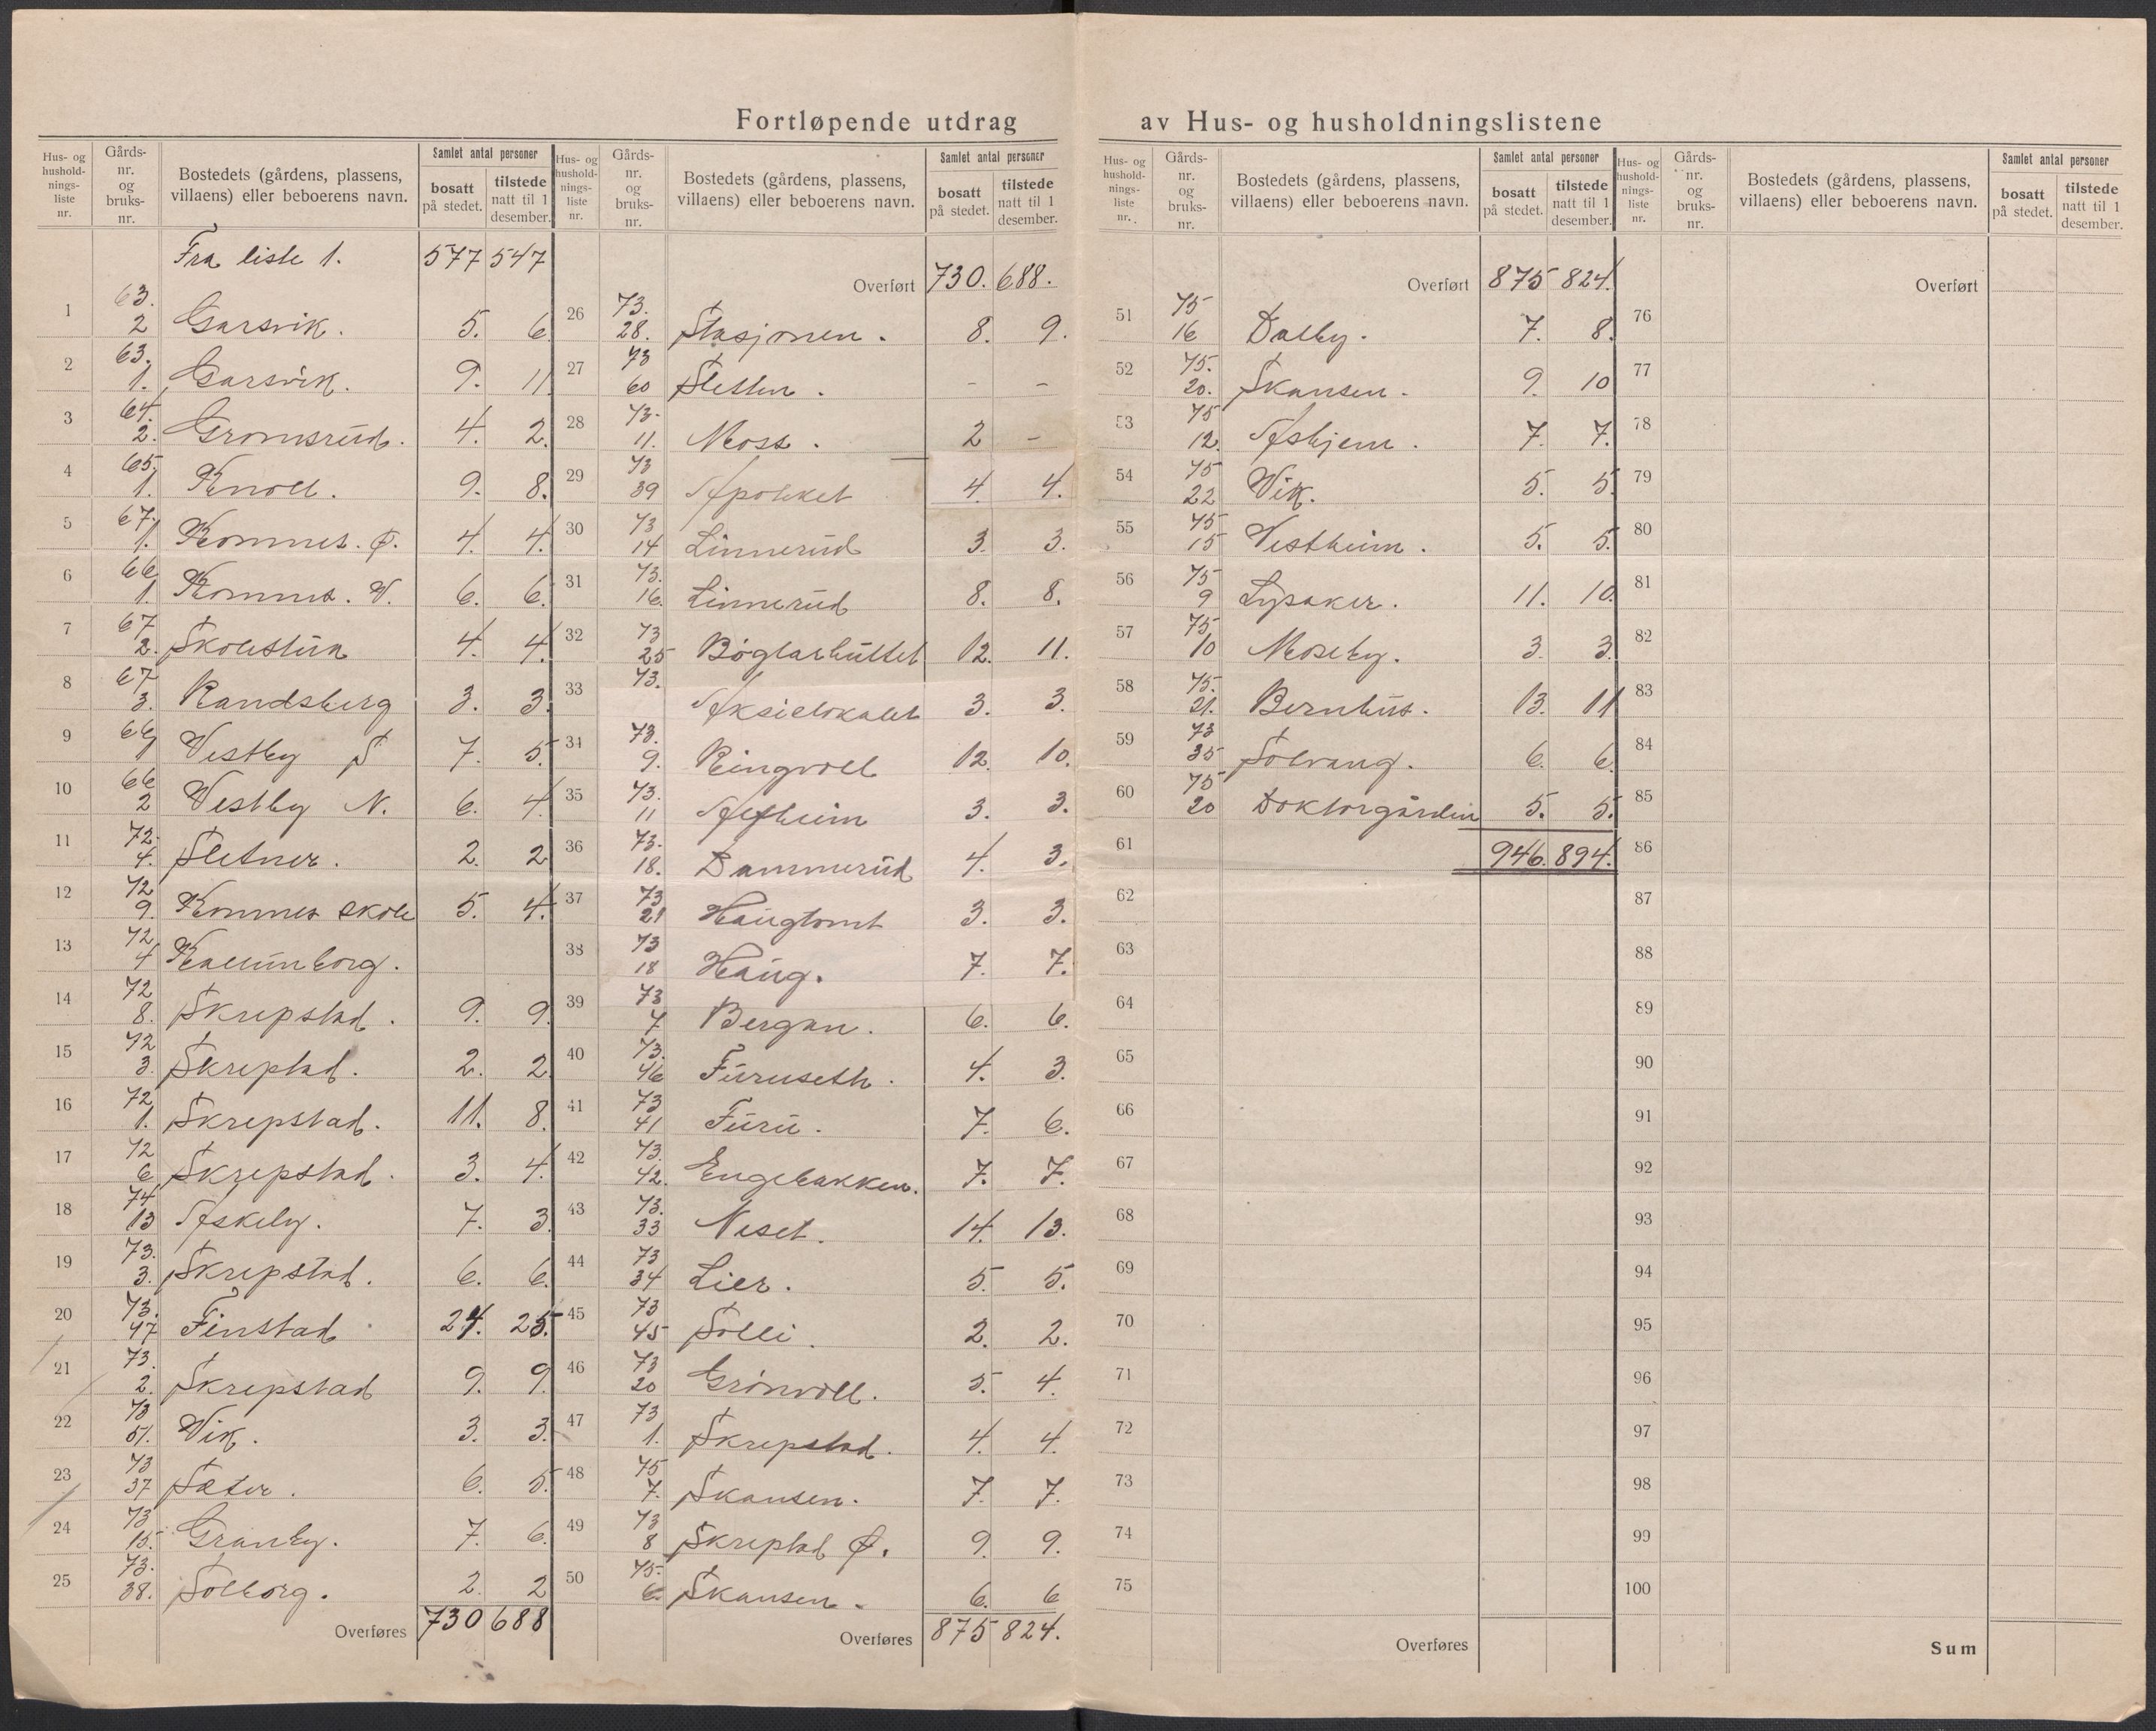 Fortløpende utdrag av Hus- og husholdningslistene
Hus- og hushold-nings-liste nr. Gårds-nr. og bruks-nr. Bostedets (gårdens, plassens, villaens) eller beboerens navn. Samlet antal personer bosatt på stedet. tilstede natt til 1 desember.
Fra liste 1. 577 547
1 63. 2 Garsvik. 5. 6
2 63. 1. Garsvik. 9. 11
3 64. 2. Gromsrud. 4. 2.
4 65 1. Knoll. 9. 8.
5 67. 1. Kommes. Ø. 4. 4.
6 66 1. Kommes. V. 6. 6.
7 67 2. Skolestua 4. 4.
8 67 3. Randsberg 3. 3.
9 66 1 Vestby S 7. 5.
10 66 2 Vestby N. 6. 4.
11 72. 4. Sletner. 2. 2
12 72 9. Kommes skole 5. 4.
13 72 4 Kallumborg.
14 72 8. Skrepstad. 9. 9.
15 72 3. Skreptad. 2. 2
16 72 1. Skrepstad. 11. 8.
17 72 6 Skrepstad. 3. 4.
18 74. 13 Askeby. 7. 3.
19 73. 3. Skrepstad. 6. 6.
20 73. 47 Finstad 24. 25.
21 73. 2. Skrepstad 9. 9.
22 73 51. Vik. 3. 3.
23 73 37 Sæter. 6. 5.
24 73 15. Granby. 7. 6.
25 73. 38. Solborg. 2. 2
Overføres 730 688
Hus- og hushold-nings-liste nr. Gårds-nr. og bruks-nr. Bostedets (gårdens, plassens, villaens) eller beboerens navn. Samlet antal personer bosatt på stedet. tilstede natt til 1 desember.
Overført 730. 688.
26 73. 28. Stasjonen. 8. 9.
27 73 60 Sletten. - -
28 73. 11. Moss. 2 -
29 73 39 Apoteket 4. 4.
30 73 14 Linnerud 3. 3.
31 73. 16. Linnerud 8. 8.
32 73 25 Böglarhuttet 12. 11.
33 73. Aksielokalet 3. 3.
34 73. 9. Ringvoll 12. 10.
35 73. 11 Alfheim 3. 3.
36 73. 18. Dammerud 4. 3.
37 73 21 Haugtomt 3. 3.
38 73 18 Haug. 7. 7.
39 73 7 Bergan. 6. 6.
40 73. 46 Furuseth. 4. 3.
41 73 41 Furu. 7. 6.
42 73. 42. Engebakken. 7. 7.
43 73. 33 Neset. 14. 13.
44 73 34 Lier. 5. 5.
45 73 45 Solli. 2. 2.
46 73 20 Grönvoll. 5. 4.
47 73 1. Skrepstad. 4. 4.
48 75 7. Skansen. 7. 7.
49 73 8 Skreptad Ø. 9. 9.
50 75. 6. Skansen. 6. 6
Overføres 875 824.
Hus- og hushold-nings-liste nr. Gårds-nr. og bruks-nr. Bostedets (gårdens, plassens, villaens) eller beboerens navn. Samlet antal personer bosatt på stedet. tilstede natt til 1 desember.
Overført 875 824.
51 75 16 Dalby. 7. 8.
52 75. 20. Skansen. 9. 10
53 75 12. Askjem. 7. 7.
54 75 22 Vik. 5. 5.
55 75 15 Vestheim. 5. 5.
56 75 9 Lysaker. 11. 10.
57 75 10 Moseby. 3. 3.
58 75. 21. Bernhus. 13. 11
59 73 35 Solvang. 6. 6.
60 75 20 Doktorgården 5. 5.
61 946. 894.
62
63
64
65
66
67
68
69
70
71
72
73
74
75
Overføres
Hus- og hushold-nings-liste nr. Gårds-nr. og bruks-nr. Bostedets (gårdens, plassens, villaens) eller beboerens navn. Samlet antal personer bosatt på stedet. tilstede natt til 1 desember.
Overført
76
77
78
79
80
81
82
83
84
85
86
87
88
89
90
91
92
93
94
95
96
97
98
99
100
Sum